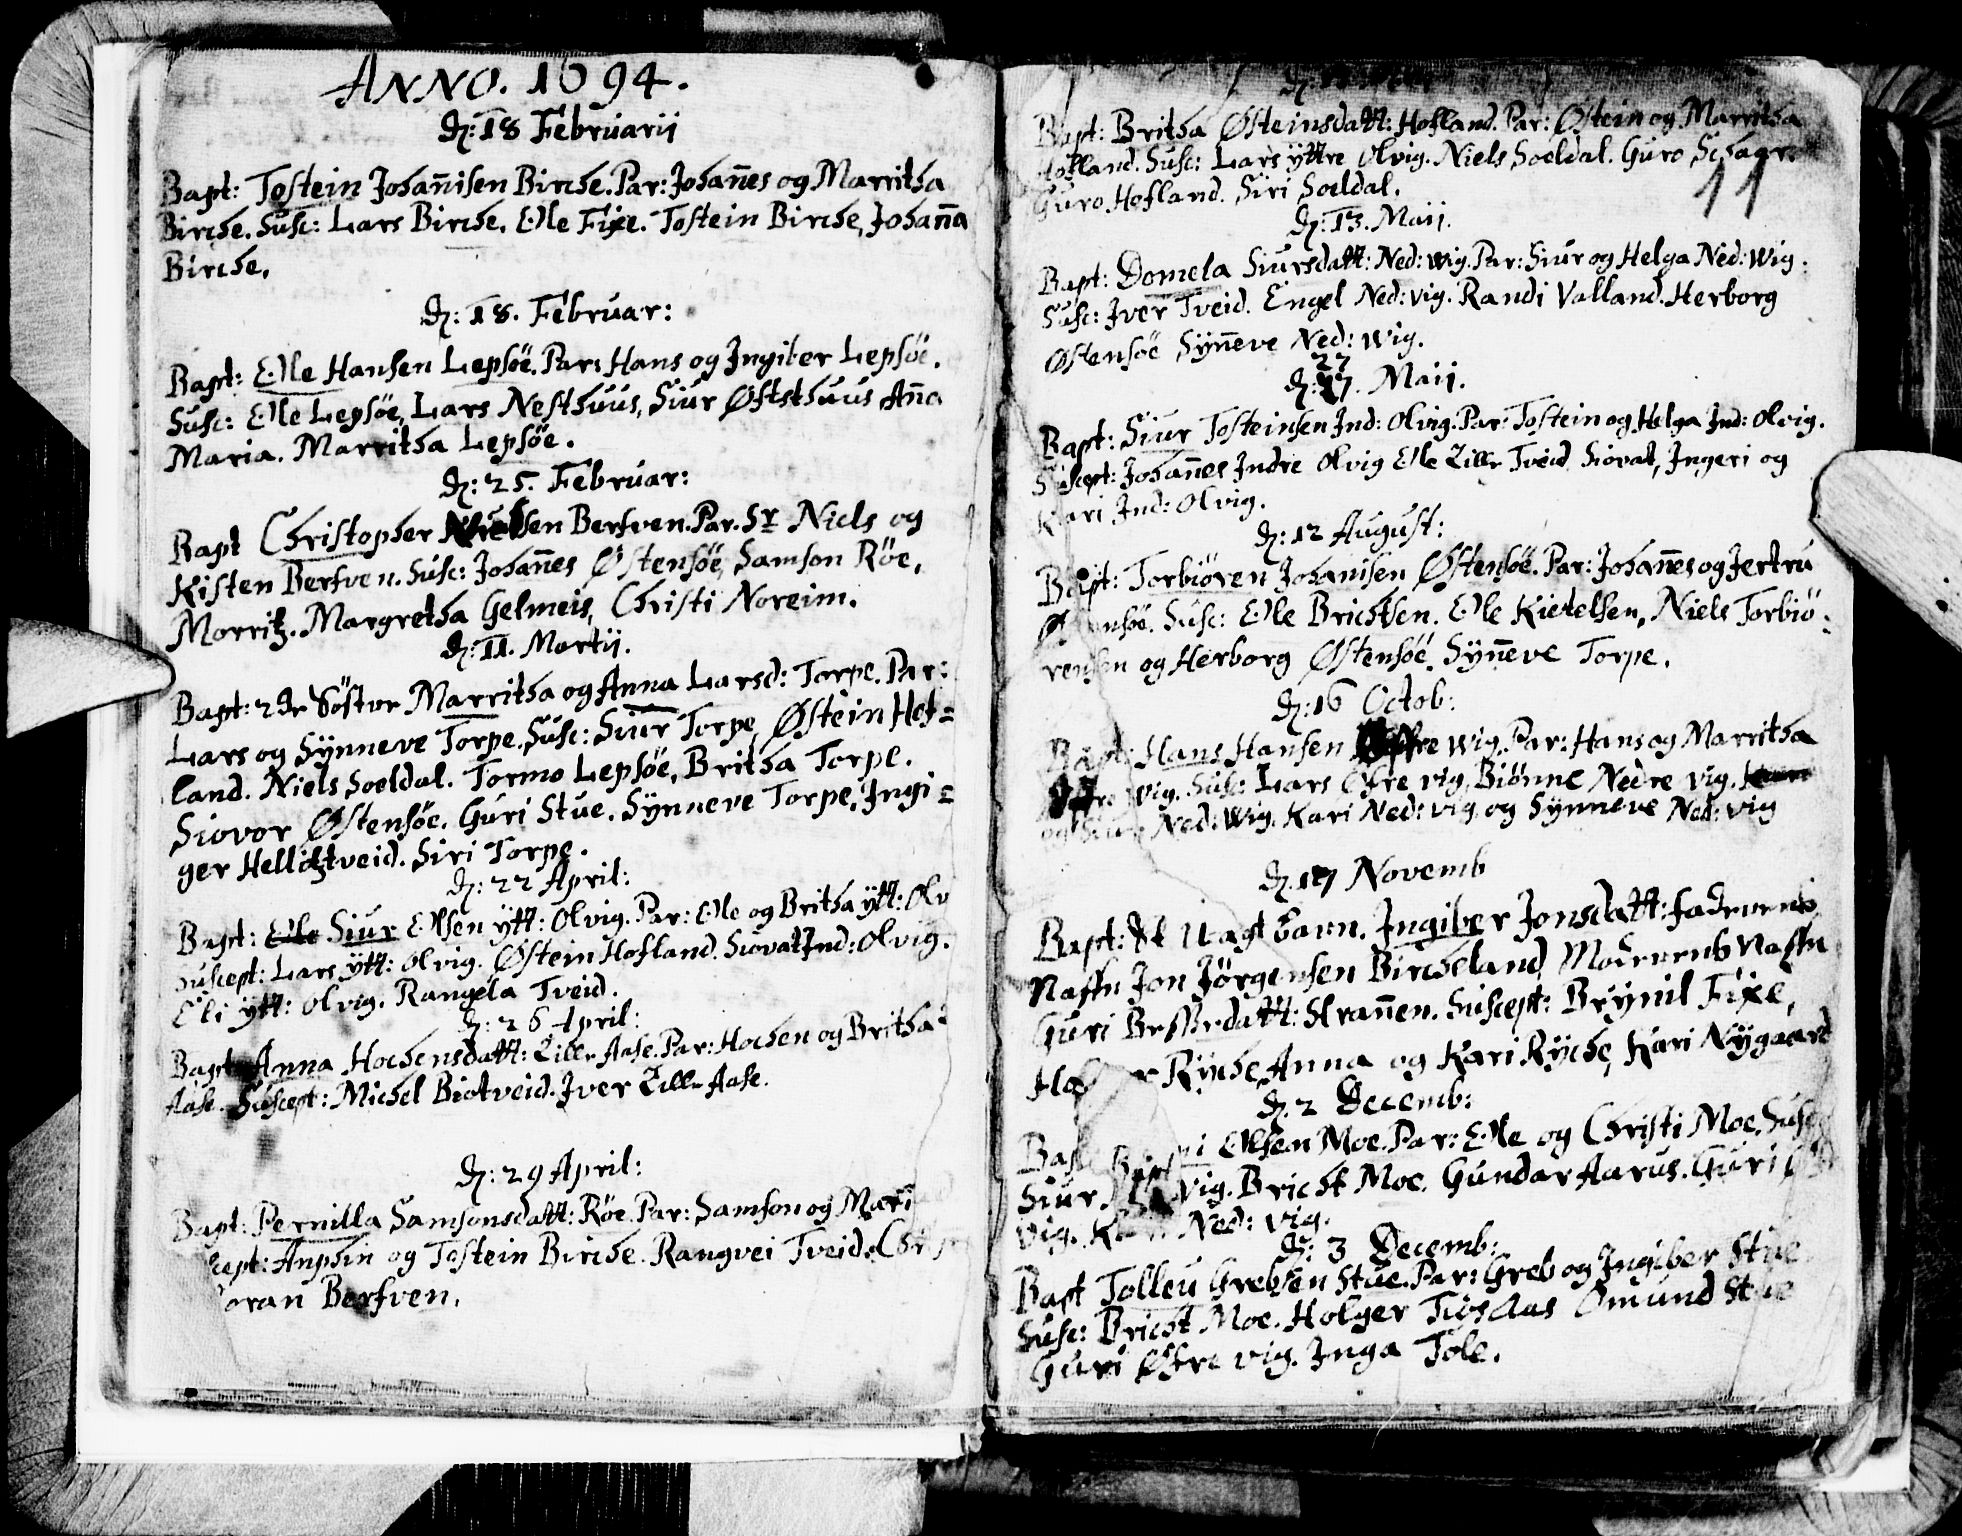 ANNO. 1694.
d: 18 Februarij
Bapt: Tostein Johañisen Birche. Par: Johañes og Marritha
Birche. Susc: Lars Birche, Elle Fixe. Tostein Birche, Johaña
Birche.
d: 18. Februar:
Bapt: Elle Hansen Lepsöe. Par: Hans og Jngiber Lepsöe.
Susc: Elle Lepsöe, Lars Nesthuus, Siur Øfsthuus Aña
Maria. Marritha Lepsöe.
d: 25. Februar:
Bapt Christopher Nielsen Berfven. Par. Sr Niels og
Kisten Berfven. Susc: Johañes Østensöe, Samson Röe,
Morritz. Margretha Gelmeis, Christi Noreim.
d: 11. Martij.
Bapt: 2 Söster Marritha og Anna Larsd: Torpe. Par:
Lars og Sÿnneve Torpe. Susc: Siur Torpe, Østein Hof=
land. Niels Soeldal. Tormo Lepsöe, Britha Torpe.
Siovor Østensöe. Guri Stue. Sÿnneve Torpe, Jngi=
ger Hellicktveid. Siri Torpe.
d: 22 April:
Bapt: Elle Siur Ellsen ÿtt: Olvig. Par: Elle og Britha ÿtt: Olv
suscept: Lars ÿtt: olvig. Østein Hofland. Siovat Jnd: olvig.
Eli ÿtt: olvig. Rangela Tveid.
d: 26 April:
Bapt Anna Hochensdatt: Lille Aase. Par: Hochen og Britha
Aase. Suscept: Michel Biotveid. Jver Lille Aase.
d: 29 April:
Bapt: Pernilla Samsonsdatt: Röe. Par: Samson og Mari
cept: Anphin og Tostein Birche. Rangvei Tveid.
Berfven.
Bapt: Britha Østeinsdatt: Hofland. Par: Østein og Marritha
Hofland. Susc: Lars ÿttre Olvig. Niels Soeldal. Guro
Guro Hofland. Siri Soeldal.
11
d: 13. Maij.
Bapt: Domela Siursdatt: Ned: wig. Par: Siur og Helga Ned: Wig.
Susc: Jver Tveid. Engel Ned: vig. Randi Valland. Herborg
Østensöe Sÿñeve Ned: Wig.
27
d: 27. Maij.
Bapt: Siur Tosteinsen Jnd: Olvig. Par Tostein og Helga Jnd: Olvig.
Suscept: Johañes Jndre Olvig Elle Lille Tveid Siovat, Jngeri og
Kari Jnd: Olvig.
d: 12 August:
Bapt: Torbiören Johanisen Østensöe. Par: Johañes og Jertru
Østensöe. Susc: Elle Brichtsen. Elle Kietelsen, Niels Torbiö=
rensen og Herborg Østensöe, Sÿñeve Torpe.
d: 16 Octob:
Bapt: Hans Hansen Øffre Wig. Par: Hans og Marritha
Wig. Susc: Lars Øfre vig, Biönne Nedre vig.
og Siur Ned: Wig. Kari Ned: vig og Sÿnneve Ned: vig
d: 17 Novemb
Bapt: Et Uagt barn. Jngiber Jonsdatt: faderens
Naffn Jon Jörgensen Bircheland Moderens Naffn
Guri datt: Strañen. Suscept: Brÿnil Fixe,
Rÿche, Anna og Kari Rÿche, Kari Nÿgaard
d: 2 Decemb:
Ellsen Moe. Par: Elle og Christi Moe. Susc
Siur. vig. Bricht Moe. Gundar Aarus. Guri
vig. Ned: vig.
d: 3 Decemb:
Bapt Tolleu Grebsen Stue. Par: Greb og Jngiber Stue
Susc: Bricht Moe. Holger Tiosaas Omund Stue
Guri Øfre vig. Jnga Tole.